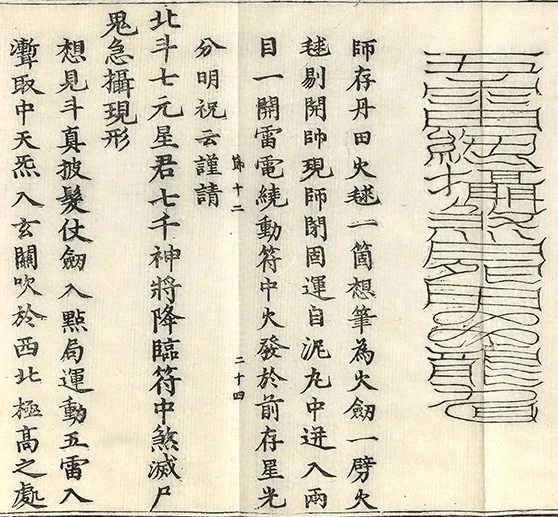 師存丹田火毬一箇想筆為火劒一劈火
毬剔開帥現師閉固運自泥丸中迸入兩
目一開雷電繞動符中火發於前存星光
分明祝云謹請
師十二
二十四
北斗七元星君七千神將降臨符中煞滅尸
鬼急攝現形
想見斗真披髮仗劒入點局運動五雷入
灊取中天炁入玄關吹於西北極高之處